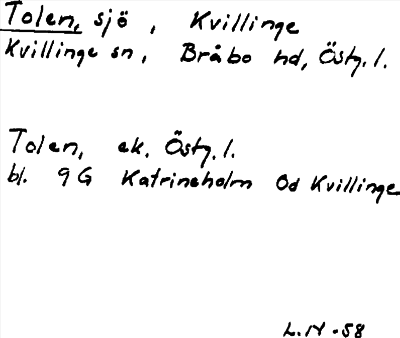 Tolen, sjö, Kvillinge
Kvillinge sn, Bråbo hd, Östg. l.
Tolen, ek. Östg. l.
bl. 9G Katrineholm Od Kvillinge
L. N -58